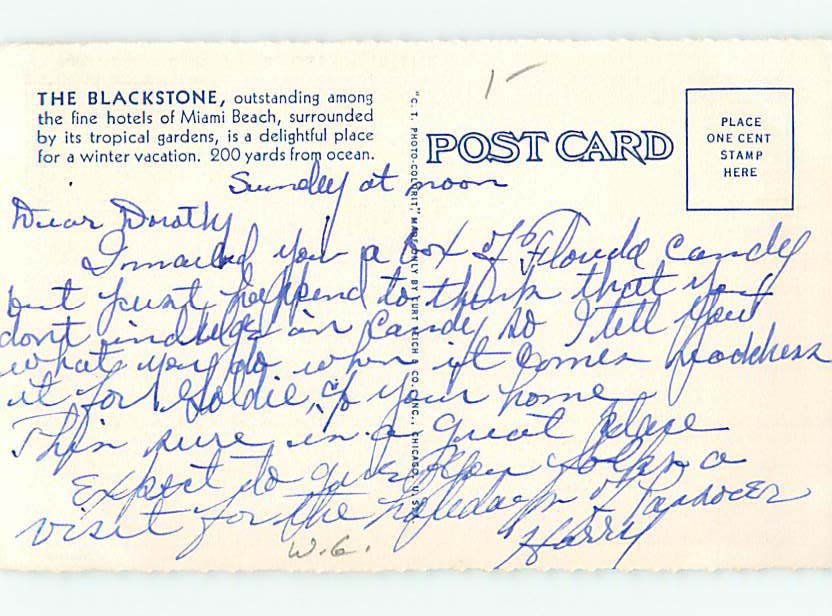 THE BLACKSTONE, outstanding among
the fine hotels of Miami Beach, surrounded
by its tropical gardens, is a delightful place
for a winter vacation. 200 yards from ocean.
"C. T. PHOTO-COLORIT," MADE ONLY BY CURT TEICH & CO., INC., CHICAGO, U.S.A.
1-
POST CARD
PLACE
ONE CENT
STAMP
HERE
Sunday at noon
Dear Dorothy
I mailed you a box of Florida candy
but just happend to think that you
dont indulge in Candy so I tell you
what you do when it Comes
it for Goldie, your home
This sure is a great place
Expect to give folks a
visit for the holidays of Passover
Harry
W.G.